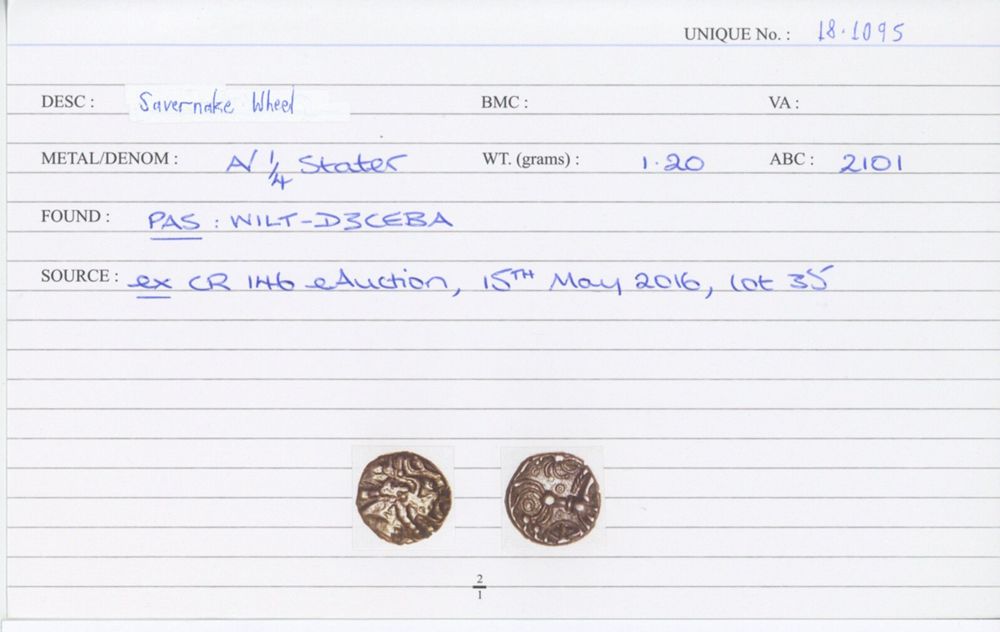 UNIQUE No. : 18.1095
DESC : Savernake Wheel BMC : VA :
METAL/DENOM : A/ 1/4 Stater WT. (grams) : 1.20 ABC : 2101
FOUND : PAS : WILT-D3CEBA
SOURCE : ex CR 146 eAuction, 15TH May 2016, lot 35
2/1